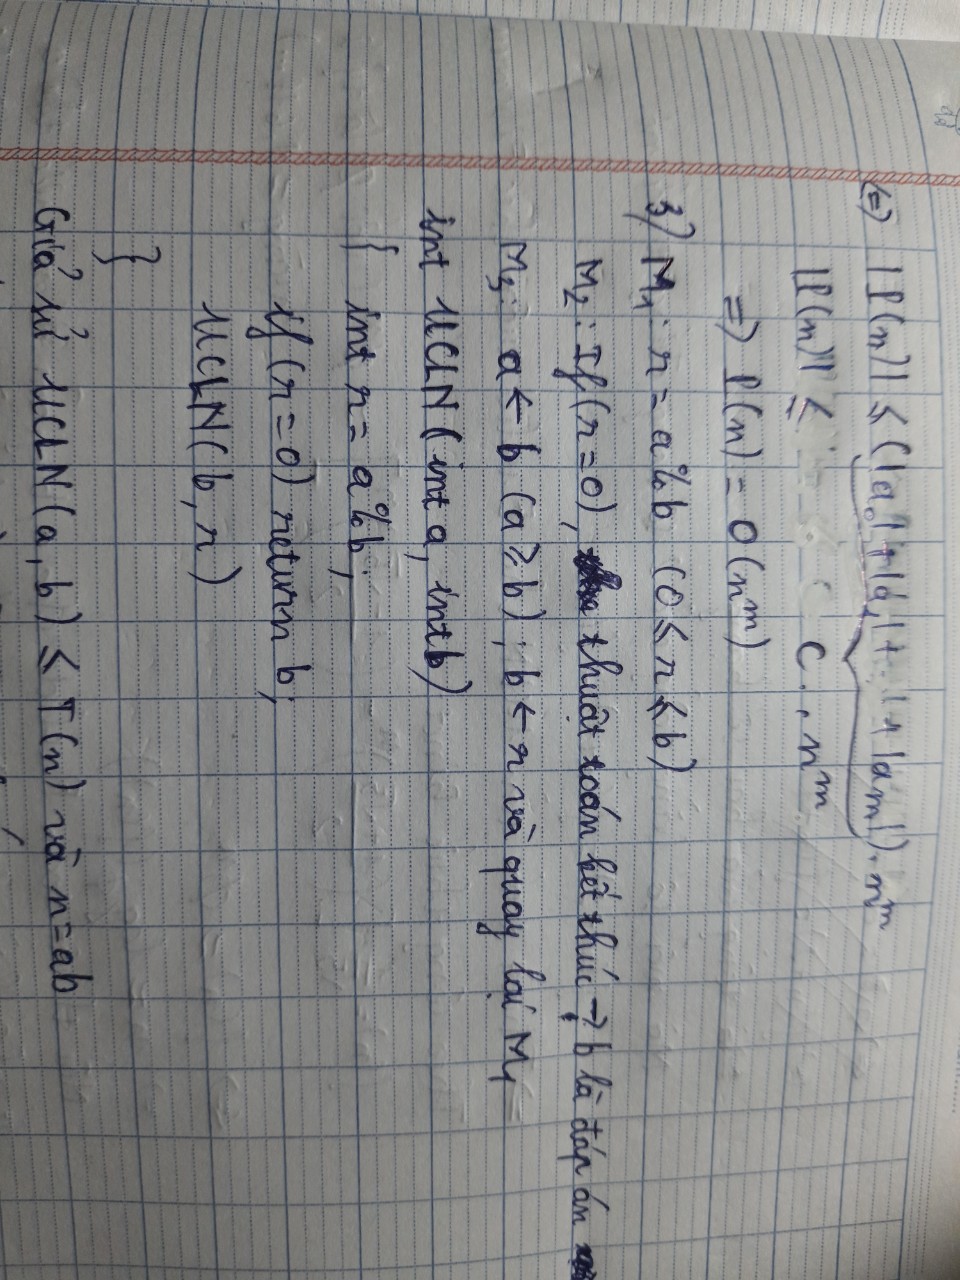 <=> |P(n)| ≤ (|a₀| + |a₁| + ... + |aₘ|) . nᵐ
|P(n)| ≤ C . nᵐ
=> P(n) = O(nᵐ)
3) M₁ : r = a%b (0 ≤ r ≤ b)
M₂ : If (r=0), thuật toán kết thúc → b là đáp án
M₃ : a ← b (a ≥ b) ; b ← r và quay lại M₁
int UCLN (int a, int b)
{ int r = a%b ;
if (r=0) return b;
UCLN( b, r )
}
Giả sử UCLN(a, b) ≤ T(n) và n=ab